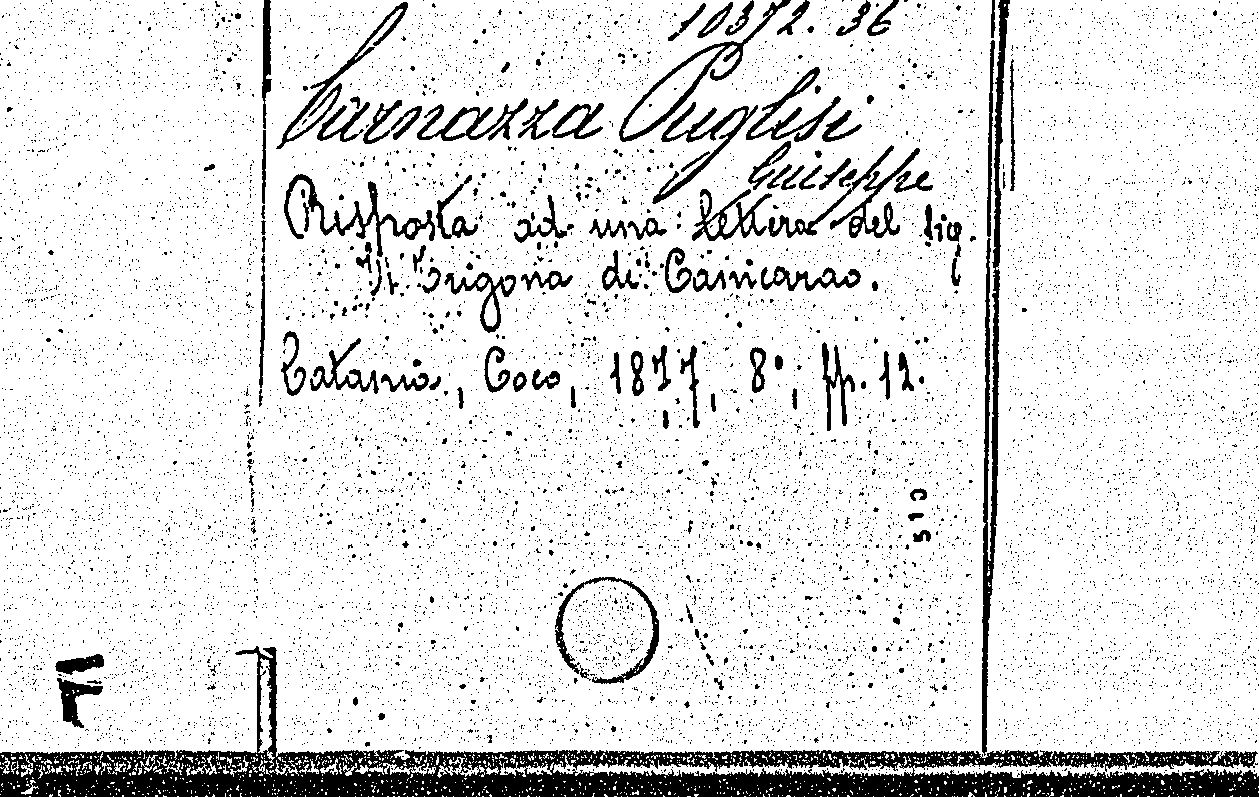 10372. 36
Carnazza Puglisi
Giuseppe
Risposta ad una lettera del sig.
Trigona di Canicarao.
Catania, Coco, 1877, 8°, pp. 12.